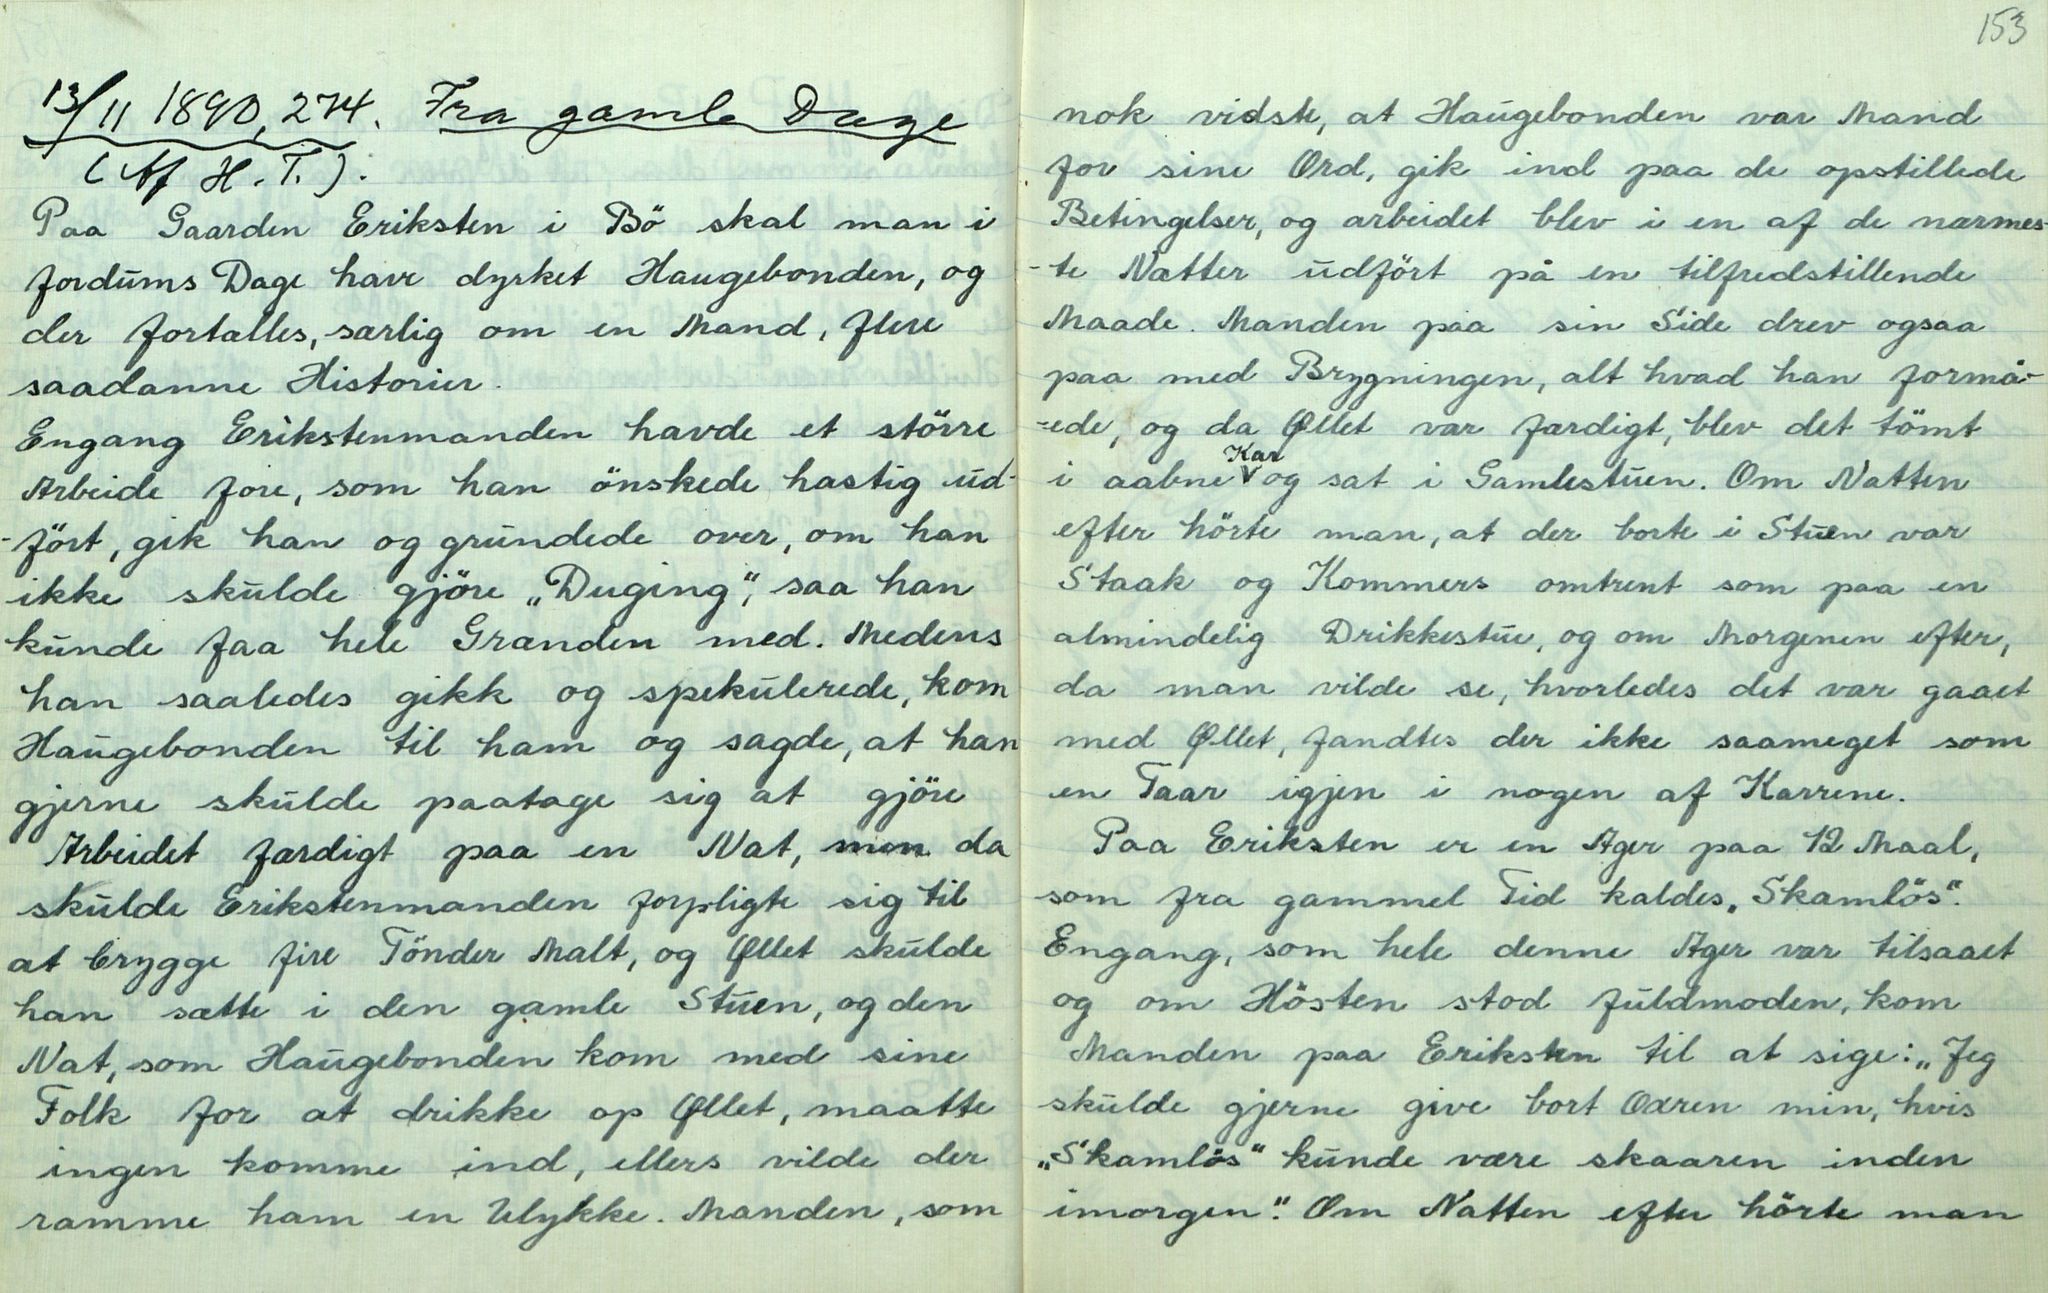 13/11 1890, 274. Fra gamle Dage
(Af H. T.).
Paa Gaarden Eriksten i Bö skal man i
fordums Dage have dyrket Haugebonden, og
der fortælles, særlig om en Mand, flere
saadanne Historier.
Engang Erikstenmanden havde et större
Arbeide fore, som han önskede hastig ud-
-fört, gik han og grundede over, om han
ikke skulde gjöre „Duging“, saa han
kunde faa hele Grænden med. Medens
han saaledes gikk og spekulerede, kom
Haugebonden til ham og sagde, at han
gjerne skulde paatage sig at gjöre
Arbeidet færdigt paa en Nat, men da
skulde Erikstenmanden forpligte sig til
at brygge fire Tönder Malt, og Øllet skulde
han sætte i den gamle Stuen, og den
Nat, som Haugebonden kom med sine
Folk for at drikke op Øllet, maatte
ingen komme ind, ellers vilde der
ramme ham en Ulykke. Manden, som
153
nok vidste, at Haugebonden var Mand
for sine Ord, gik ind paa de opstillede
Betingelser, og arbeidet blev i en af de nærmes-
-te Nætter udfört på en tilfredstillende
Maade. Manden paa sin Side drev ogsaa
paa med Brygningen, alt hvad han formå-
-ede, og da Øllet var færdigt, blev det tömt
i aabne Kar og sat i Gamlestuen. Om Natten
efter hörte man, at der borte i Stuen var
Staak og Kommers omtrent som paa en
almindelig Drikkestue, og om Morgenen efter,
da man vilde se, hvorledes det var gaaet
med Øllet, fandtes der ikke saameget som
en Taar igjen i nogen af Karrene.
Paa Eriksten er en Ager paa 12 Maal,
som fra gammel Tid kaldes „Skamlös“.
Engang, som hele denne Ager var tilsaaet
og om Hösten stod fuldmoden, kom
Manden paa Eriksten til at sige: „Jeg
skulde gjerne give bort Oxen min, hvis
„Skamlös“ kunde være skaaren inden
imorgen“. Om Natten efter hörte man